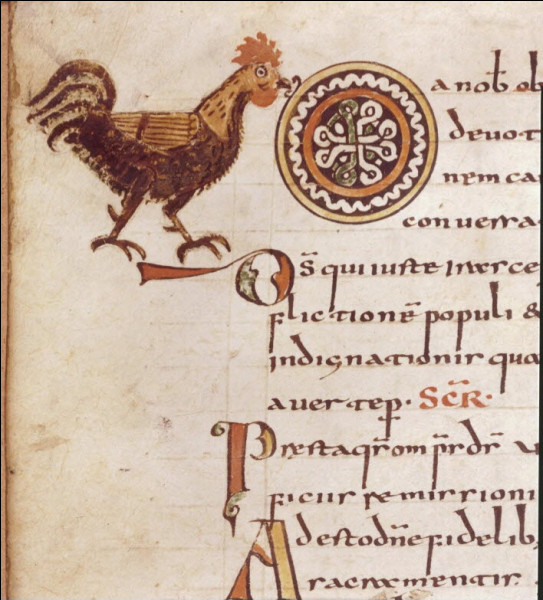 Da nob̄ ob
devot
nem ca
conversa
Ds̄ qui iuste irasce
flictionē populi &
indignationis qua
averte p· SCR̄·
Presta qs̄ omp̄s ds̄ u
ficiis remissioni
Adesto dn̄e fidelib
sacramentis